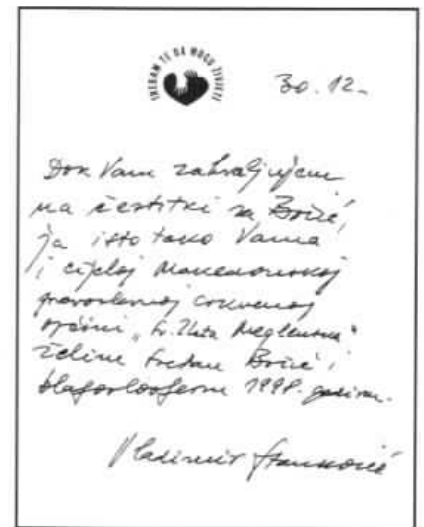 TREBAM TE DA MOGU ŽIVJETI
30.12.
Dok Vam zahvaljujem
na čestitki za Božić,
ja isto tako Vama
i cijeloj Makedonskoj
pravoslavnoj crkvenoj
općini „Sv. Zlata Meglenska“
želim sretan Božić i
blagoslovljenu 1998. godinu.
Vladimir Stanković